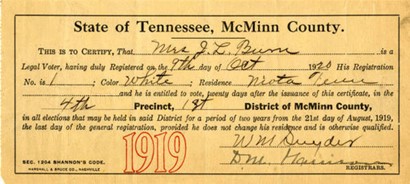 State of Tennessee, McMinn County.
THIS IS TO CERTIFY, That Mrs J. L. Burn is a
Legal Voter, having duly Registered on the 9th day of Oct 1920 His Registration
No. is 1; Color White; Residence Niota Tenn
and he is entitled to vote, twenty days after the issuance of this certificate, in the
4th Precinct, 1st District of McMinn County,
in all elections that may be held in said District for a period of two years from the 21st day of August, 1919,
the last day of the general registration, provided he does not change his residence and is otherwise qualified.
1919
W M Snyder
D. M.
SEC. 1204 SHANNON'S CODE.
MARSHALL & BRUCE CO., NASHVILLE
REGISTRARS.